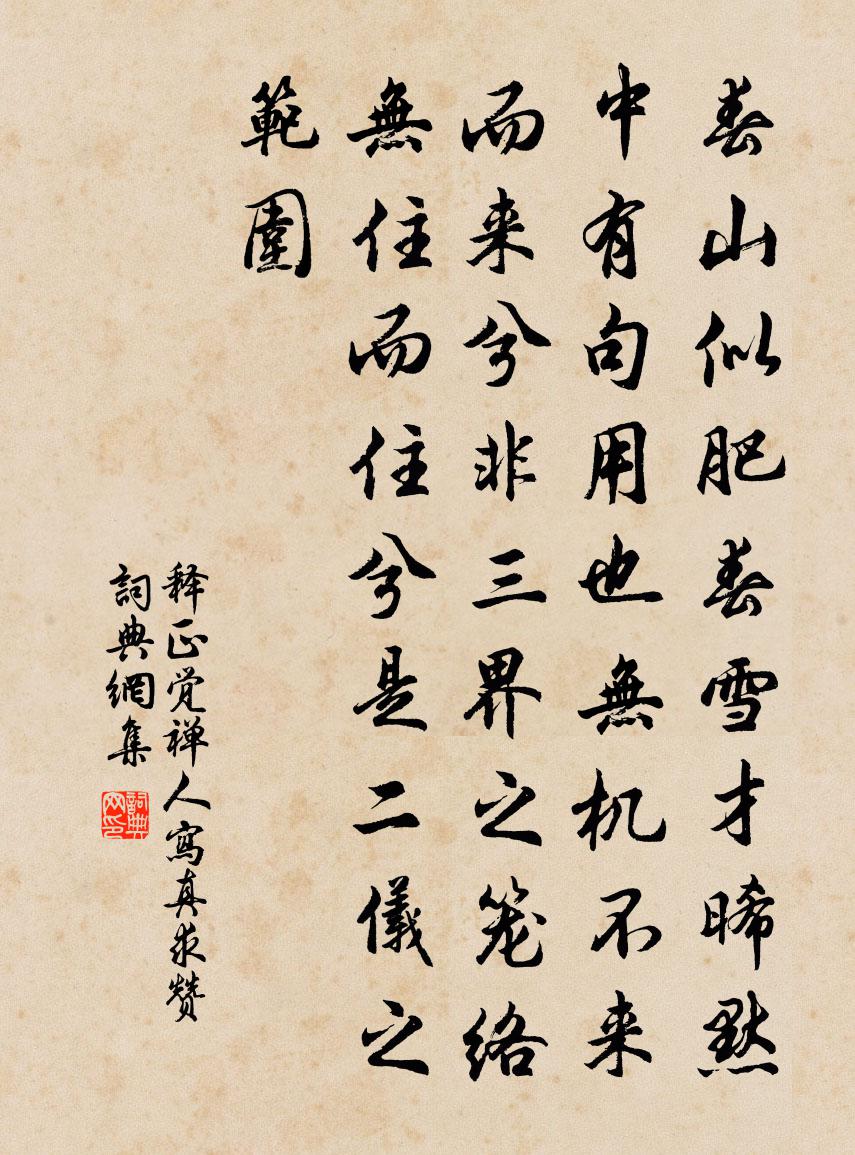 春山似肥春雪才晞默
中有句用也無机不来
而来兮非三界之笼络
無住而住兮是二儀之
範圍
释正觉禅人寫真求赞
詞典網集
詞典网印